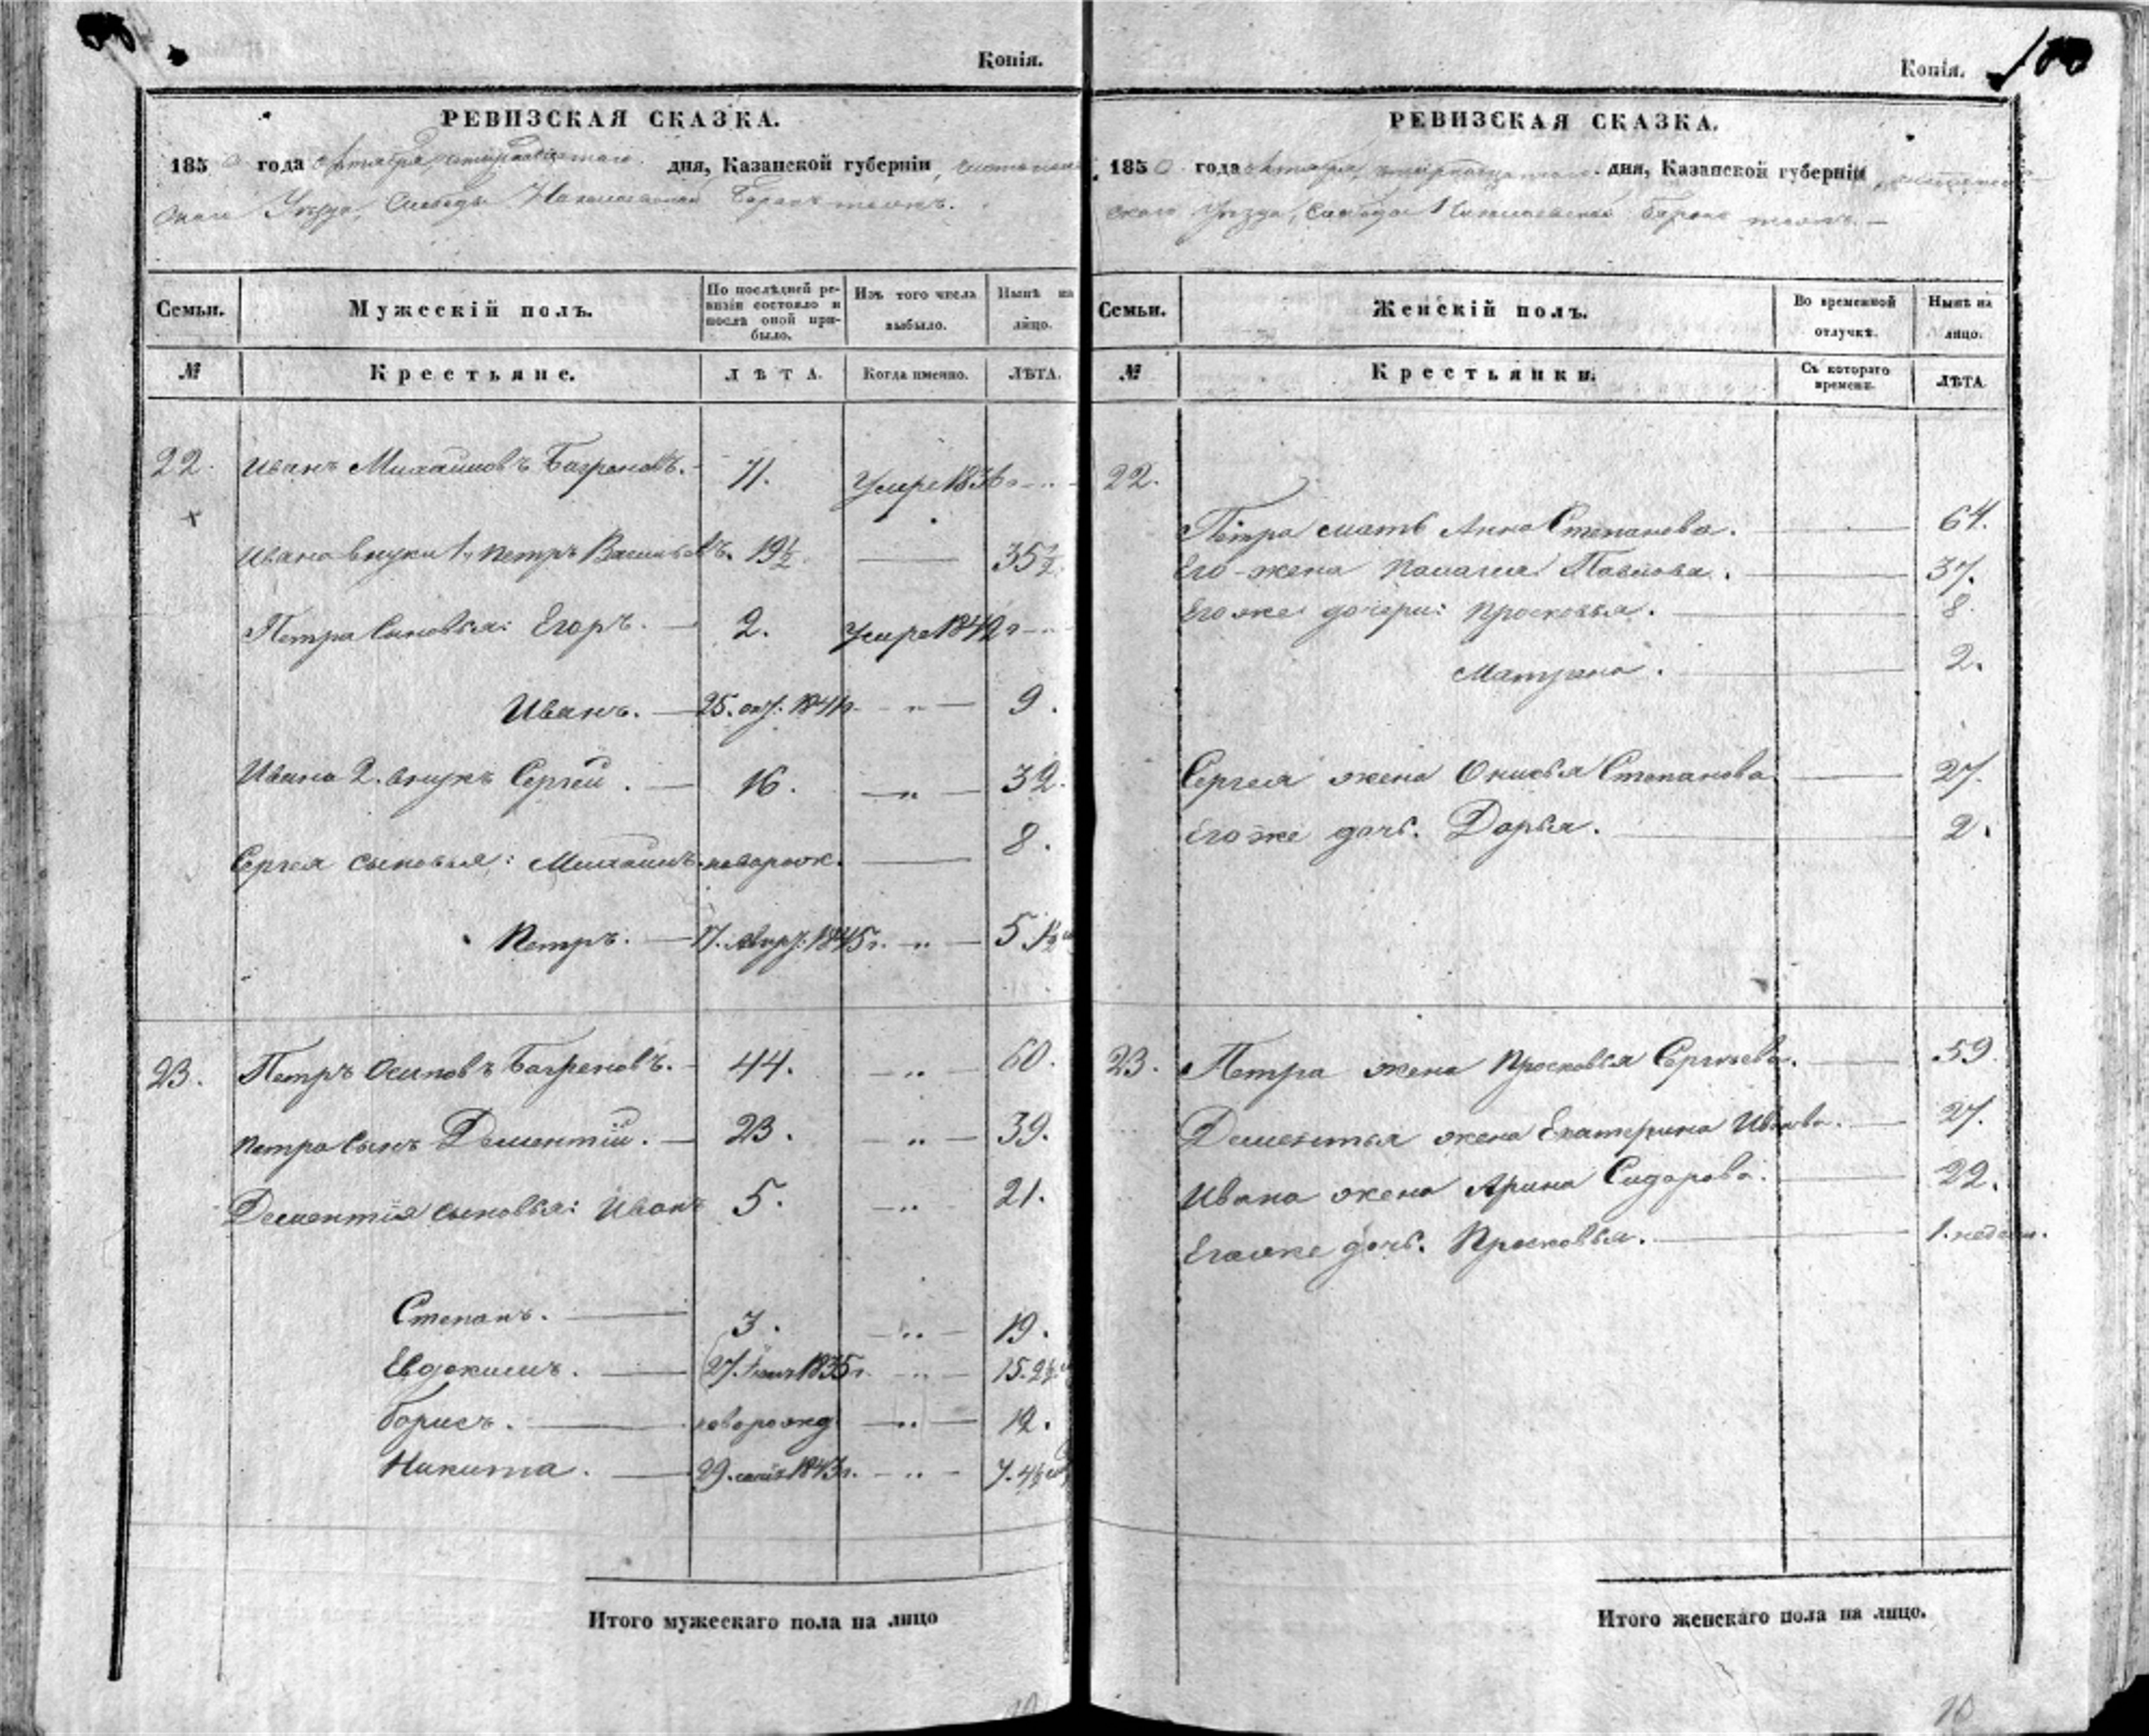 Копія.
РЕВИЗСКАЯ СКАЗКА.
1850 года Октября дня, Казанской губерніи,
Уѣзда, Слободы
Семьи.
Мужескій полъ.
По послѣдней ре-
визіи состояло и
послѣ оной при-
было.
Изъ того числа
выбыло.
Нынѣ на
лицо.
№
Крестьяне.
ЛѢТА.
Когда именно.
ЛѢТА.
22. Иванъ Михайловъ Багреновъ. 71. Умре 1836 г
Ивана внуки 1, Петръ Васильевъ. 19½ 35½
Петра Сыновья: Егоръ. 2. Умре 1842 г
Иванъ. 25. 1841 г. 9.
Ивана 2. внукъ Сергей. 16. 32.
Сергея сыновья: Михаилъ. новорож. 8.
Петръ. 17. 1845 г. 5
23. Петръ Осиповъ Багреновъ. 44. 60.
Петра Сынъ Дементій. 23. 39.
Дементія сыновья: Иванъ 5. 21.
Степанъ. 3. 19.
Евдокимъ. 27. 1835 г. 15.
Борисъ. новорожд 12.
Никита. 29. 1843 г. 7.
Итого мужескаго пола на лицо
Копія. 100
РЕВИЗСКАЯ СКАЗКА.
1850 года Октября дня, Казанской губерніи
скаго Уѣзда, Слободы
Семьи.
Женскій полъ.
Во временной
отлучкѣ.
Нынѣ на
лицо.
№
Крестьянки.
Съ котораго
времени.
ЛѢТА
22.
Петра мать Анна Степанова. 64.
Его жена Палагея Павлова. 37.
Его же дочери: Просковья. 8.
Матрена. 2.
Сергея жена Онисья Степанова 27.
Его же дочь. Дарья. 2.
23. Петра жена Просковья Сергѣева. 59.
Дементья жена Екатерина Иванова. 27.
Ивана жена Арина Сидорова. 22.
Его же дочь. Просковья. 1. недели.
Итого женскаго пола на лицо.